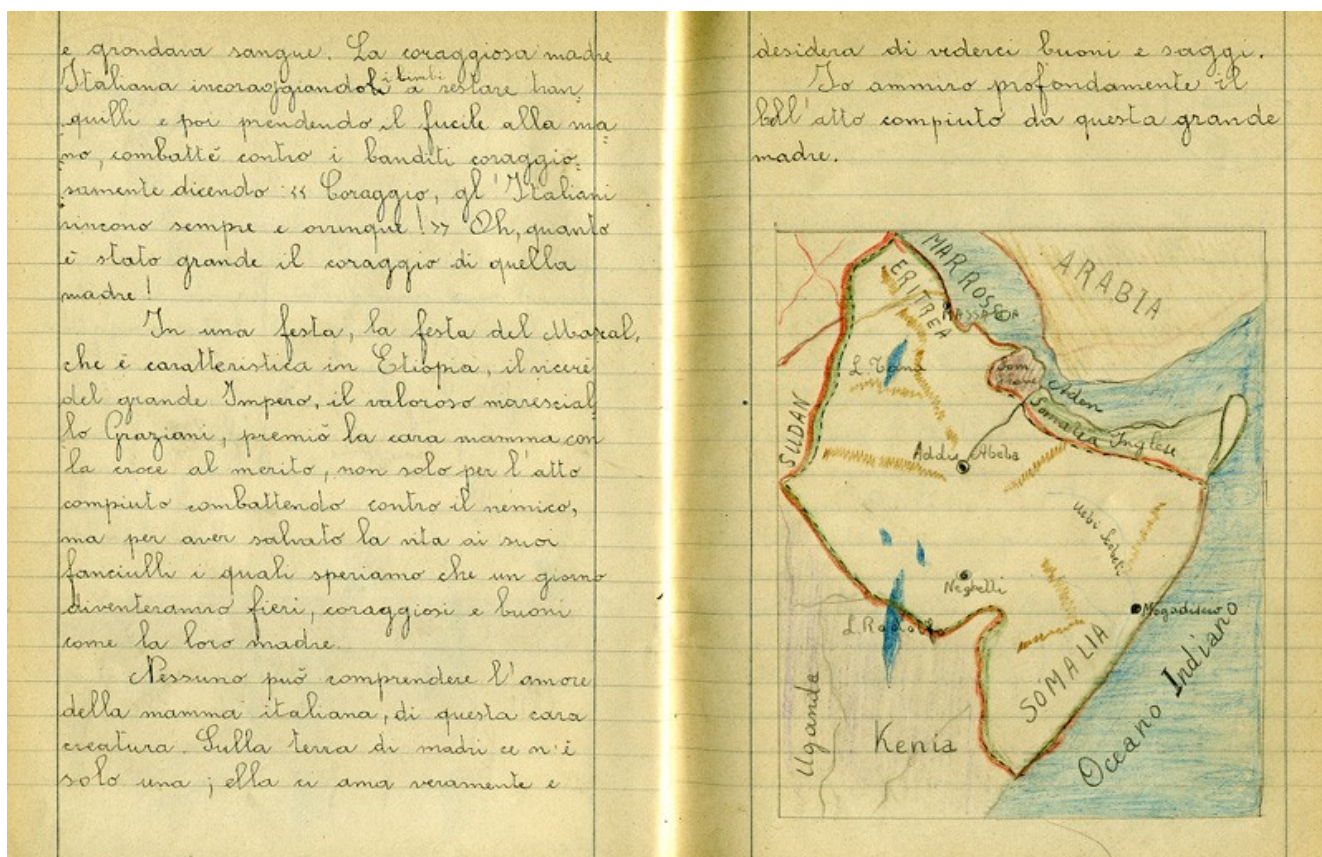 e grondava sangue. La coraggiosa madre
Italiana incoraggiandoli i bimbi a restare tran=
quilli e poi prendendo il fucile alla ma=
no, combatté contro i banditi coraggio=
samente dicendo « Coraggio, gl'Italiani
vincono sempre e ovunque! » Oh, quanto
è stato grande il coraggio di quella
madre!
In una festa, la festa del Mascal,
che è caratteristica in Etiopia, il viceré
del grande Impero, il valoroso marescial=
lo Graziani, premiò la cara mamma con
la croce al merito, non solo per l'atto
compiuto combattendo contro il nemico,
ma per aver salvato la vita ai suoi
fanciulli i quali speriamo che un giorno
diventeranno fieri, coraggiosi e buoni
come la loro madre.
Nessuno può comprendere l'amore
della mamma italiana, di questa cara
creatura. Sulla terra di madri ce n'è
solo una; ella ci ama veramente e
desidera di vederci buoni e saggi.
Io ammiro profondamente il
bell'atto compiuto da questa grande
madre.
MAR ROSSO
ARABIA
ERITREA
MASSAUA
L. Tana
Som
Aden
Somalia Inglese
SUDAN
Addis Abeba
Uebi Scebeli
Neghelli
L. Rodolfo
Mogadiscio
SOMALIA
Oceano Indiano
Uganda
Kenia